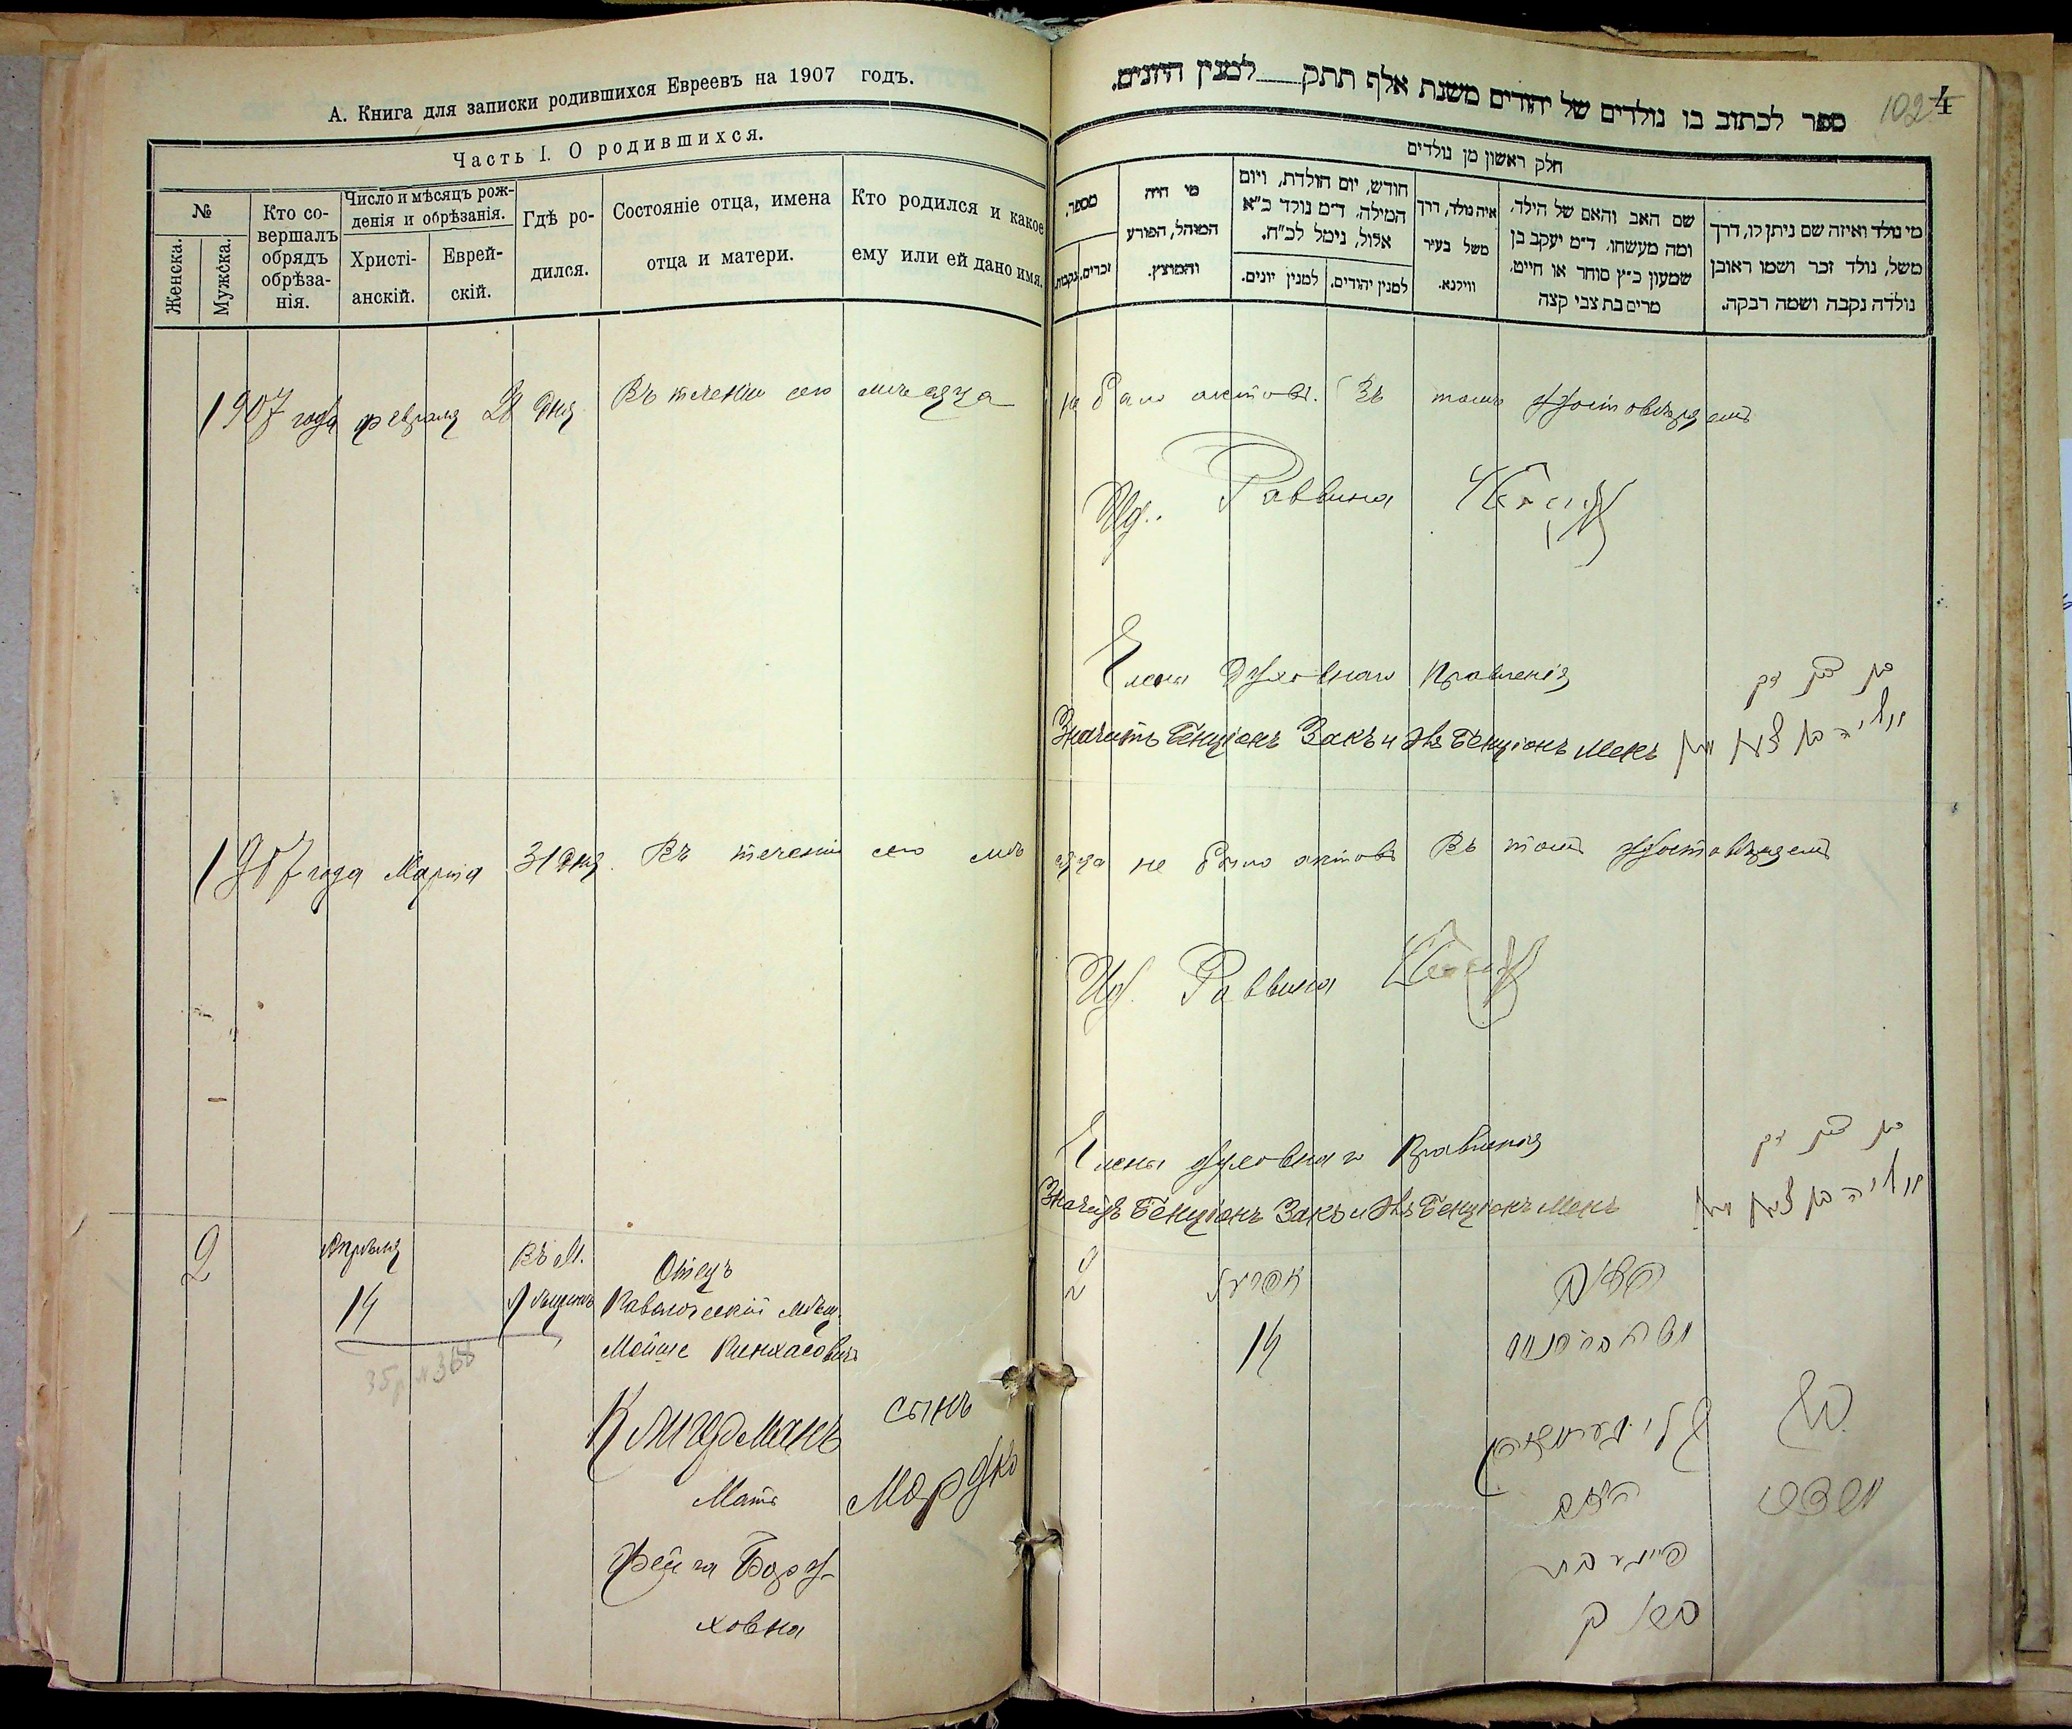 А. Книга для записки родившихся Евреевъ на 1907 годъ.
Часть I. О родившихся.
№
Женска.
Мужска.
Кто со-
вершалъ
обрядъ
обрѣза-
нія.
Число и мѣсяцъ рож-
денія и обрѣзанія.
Христі-
анскій.
Еврей-
скій.
Гдѣ ро-
дился.
Состояніе отца, имена
отца и матери.
Кто родился и какое
ему или ей дано имя.
1907 года февраля 28 дня Въ теченіи сего мѣсяца
1907 года Марта 31 дня. Въ теченіи сего мѣ
2
Апрѣля
14
Въ М.
Отецъ
Моише Пинхасовичъ
Клигерманъ
Мать
Фейга Бору-
ховна
сынъ
Мордко
35 р №368
ספר לכתוב בו נולדים של יהודים משנת אלף תתק למנין היונים.
102
4
חלק ראשון מן נולדים
מספר.
זכרים.
נקבות.
מי היה
המוהל, הפורע
והמוצץ.
חודש, יום הולדת, ויום
המילה. ד״מ נולד כ״א
אלול, נימל לכ״ח.
למנין יונים.
למנין יהודים.
איה נולד, דרך
משל בעיר
ווילנא.
שם האב והאם של הילד.
ומה מעשהו. ד״מ יעקב בן
שמעון כ״ץ סוחר או חייט.
מרים בת צבי קצה
מי נולד ואיזה שם ניתן לו, דרך
משל, נולד זכר ושמו ראובן
נולדה נקבה ושמה רבקה.
не было актовъ. Въ томъ удостовѣряемъ
Ид. Раввина
Члены Духовнаго Правленія
Значитъ Бенціонъ Закъ и Лвъ Бенціонъ Менъ
בן ציון זק
сяца не было актовъ Въ томъ удостовѣряемъ
Ид. Раввина
Члены духовнаго Правленія
Значитъ Бенціонъ Закъ и Лвъ Бенціонъ Менъ
בן ציון זק
2
אפריל
14
האב
משה בר פנחס
קליגערמאן
האם
פייגא בת
ברוך
בן
מרדכי